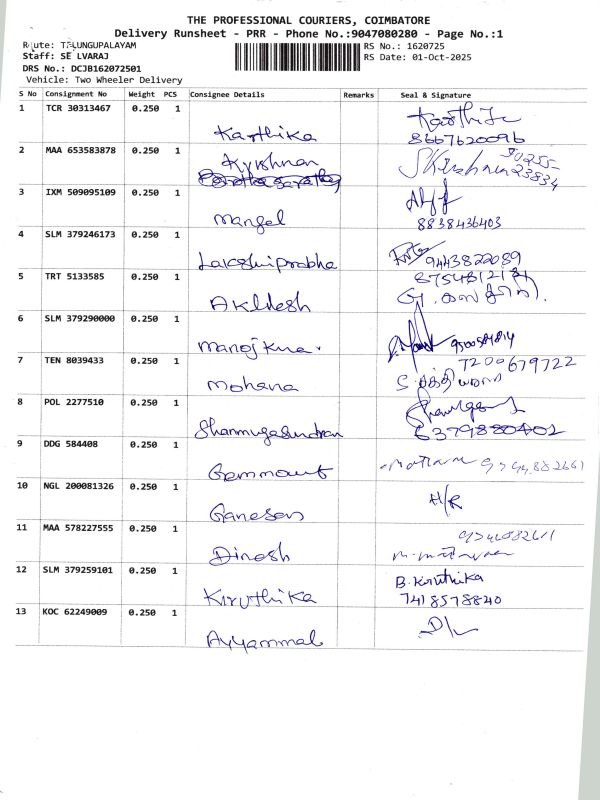 THE PROFESSIONAL COURIERS, COIMBATORE
Delivery Runsheet - PRR - Phone No.:9047080280 - Page No.:1
Route: TELUNGUPALAYAM RS No.: 1620725
Staff: SE LVARAJ RS Date: 01-Oct-2025
DRS No.: DCJB162072501
Vehicle: Two Wheeler Delivery
S No Consignment No Weight PCS Consignee Details Remarks Seal & Signature
1 TCR 30313467 0.250 1
Karthika 8667620096
2 MAA 653583878 0.250 1
Kyrishnan
3 IXM 509095109 0.250 1
Mangal 8838436403
4 SLM 379246173 0.250 1
Lakshiprabha 9443822089
5 TRT 5133585 0.250 1
Akldesh
6 SLM 379290000 0.250 1
Manojkua.
7 TEN 8039433 0.250 1 7200679722
Mohana
8 POL 2277510 0.250 1
Shanmugasundran 6379880402
9 DDG 584408 0.250 1
Gemmount
10 NGL 200081326 0.250 1 H/R
Ganesan
11 MAA 578227555 0.250 1
Dinesh
12 SLM 379259101 0.250 1 B. Kiruthika
Kiruthika 7418578840
13 KOC 62249009 0.250 1 D/L
Ayyammal